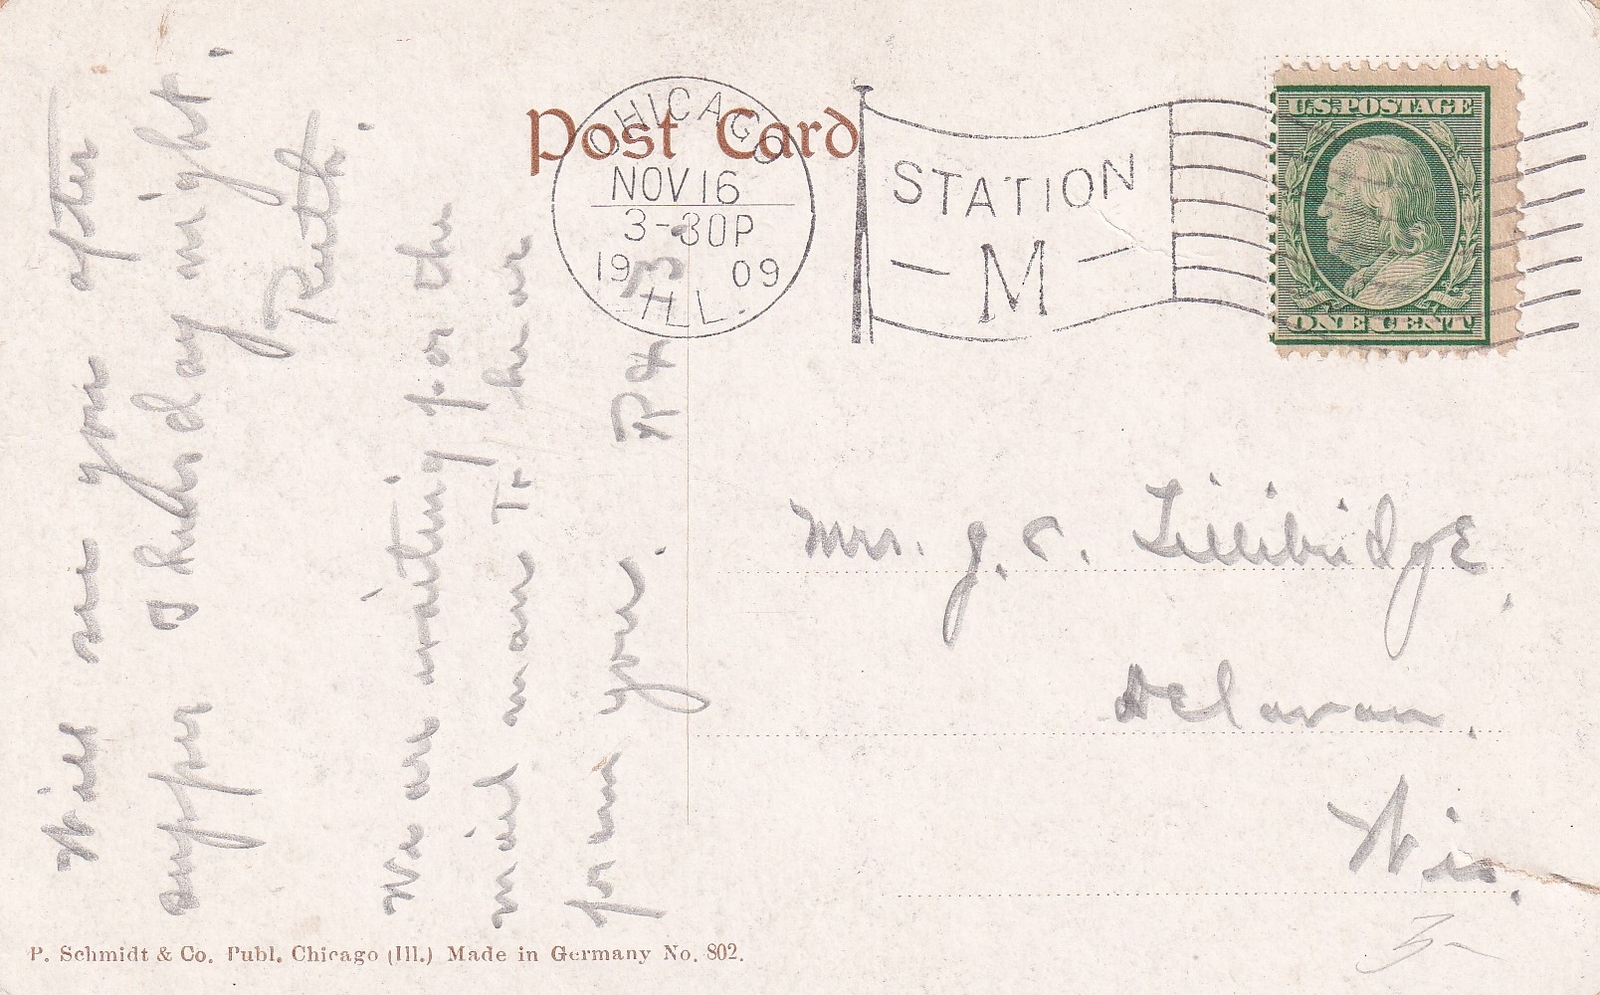 Post Card
CHICAGO
NOV 16
3-30P
19 09
ILL.
STATION
- M -
U.S. POSTAGE
ONE CENT
Will see you after
supper Thursday night.
Ruth.
We are waiting for the
mail man To hear
from you.
Mrs. J. C. Tillibridge,
Delavan,
Wis.
P. Schmidt & Co. Publ. Chicago (Ill.) Made in Germany No. 802.